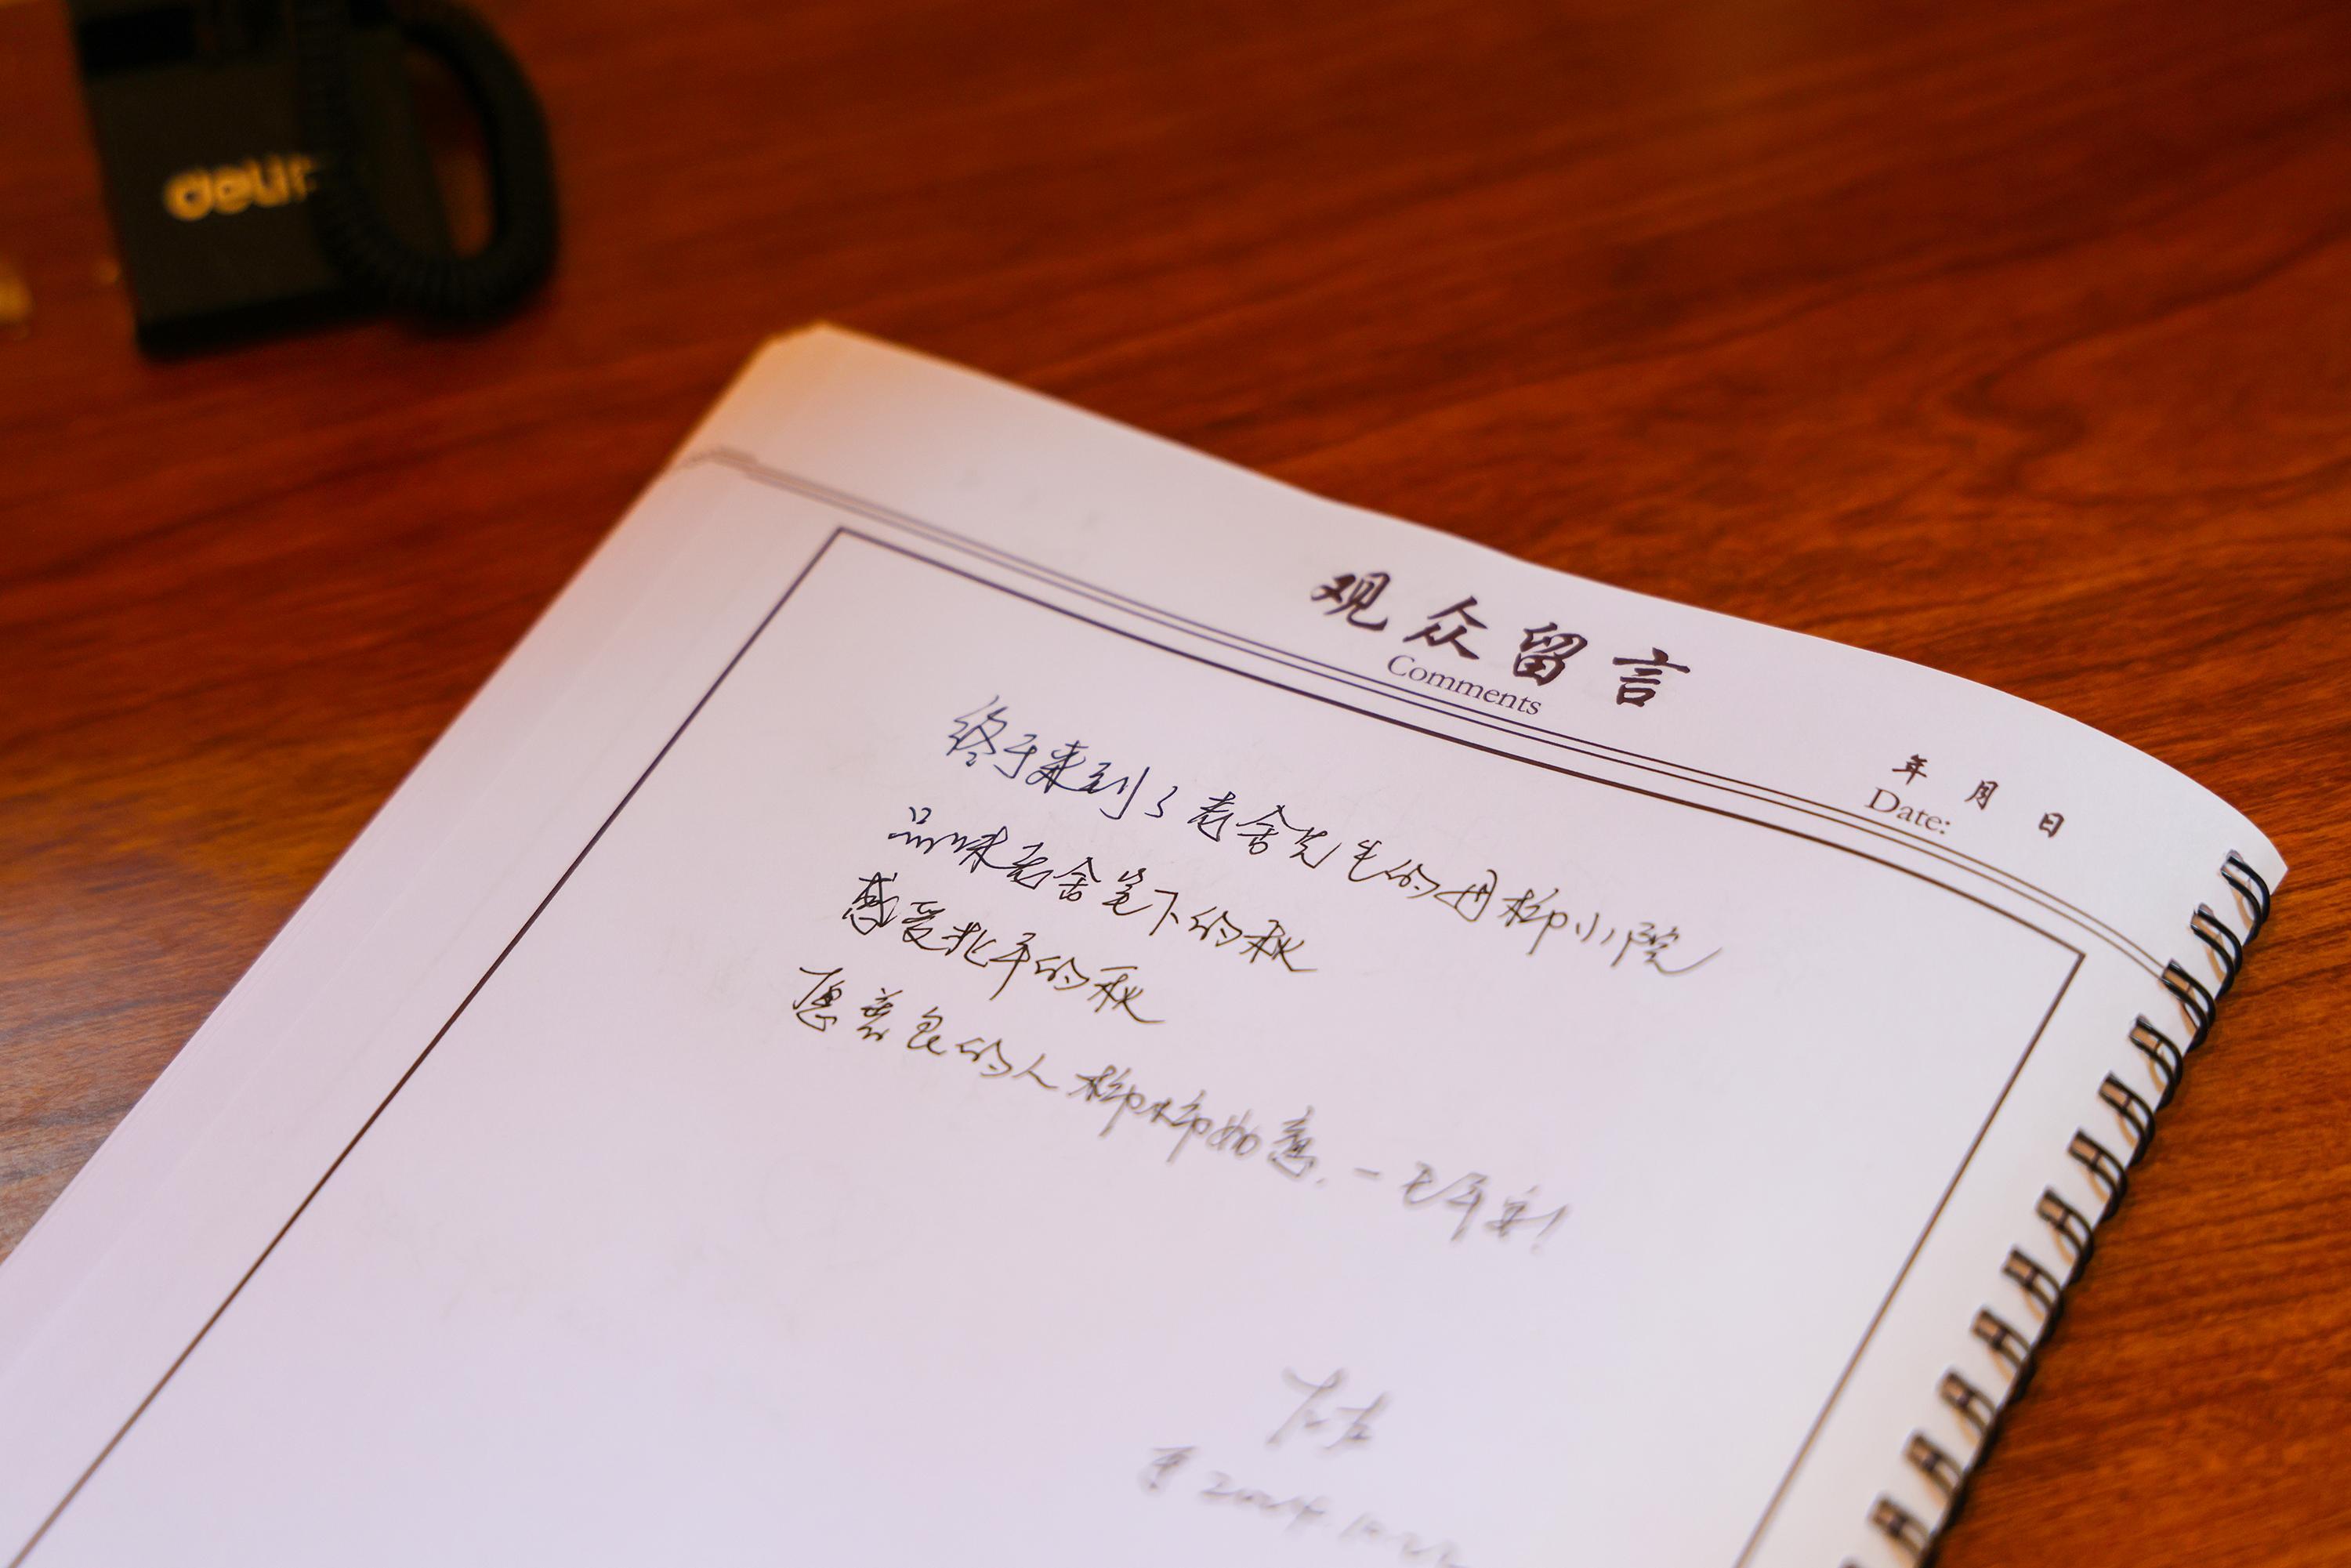 deli
观众留言
Comments
年 月 日
Date:
终于来到了老舍先生的丹柿小院
品味老舍笔下的秋
感受北平的秋
愿善良的人柿柿如意,一生平安!
2024.10.22